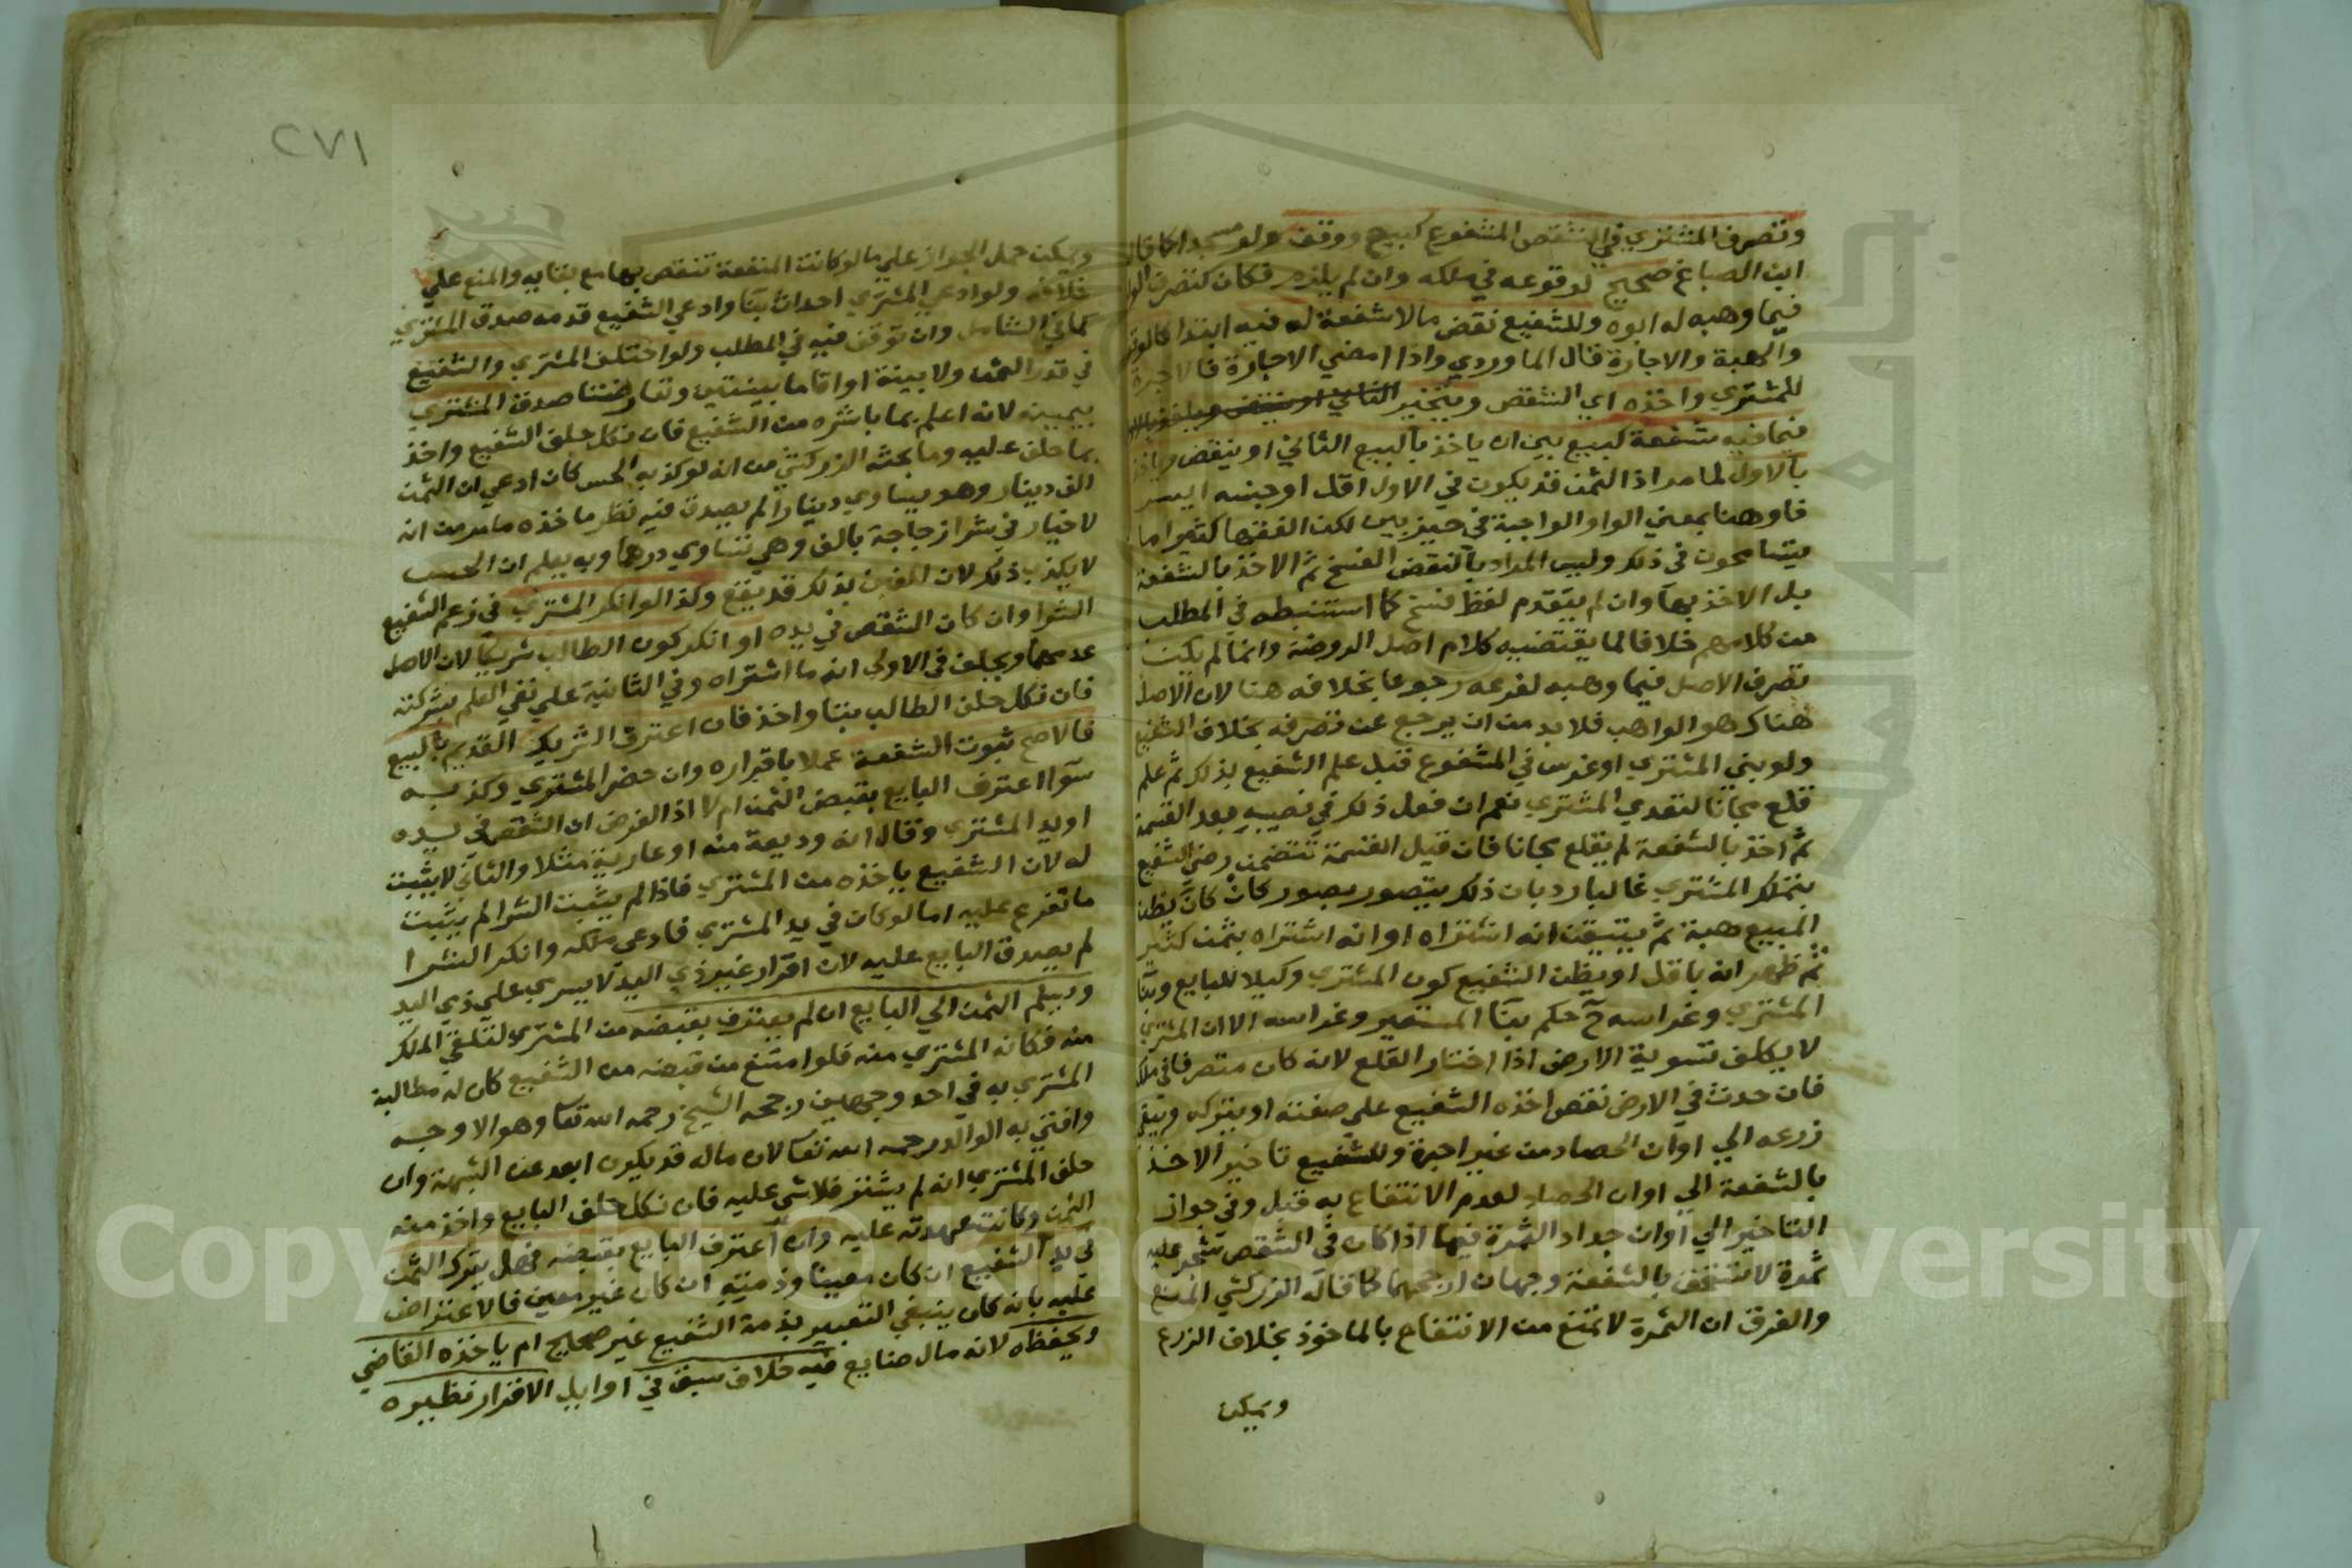 وتصرف المشتري في الشقص المشفوع كبيع ووقف ولو مسجدا كما قال
ابن الصباغ صحيح لوقوعه في ملكه وان لم يلزم فكان كتصرف الولد
فيما وهبه له ابوه وللشفيع نقض ما لا شفعة له فيه ابتدا كالوقف
والهبة والاجارة قال الماوردي واذا امضي الاجارة فالاجرة
للمشتري واخذه اي الشقص ويتخير
فيما فيه شفعة كبيع بين ان ياخذ بالبيع الثاني او ينقض وياخذ
بالاول لما مر اذ الثمن قد يكون في الاول اقل او جنسه ايسر
فاو هنا بمعني الواو الواجبة في حيز بين لكن الفقها كثيرا ما
يتسامحون في ذلك وليس المراد بالنقض الفسخ ثم الاخذ بالشفعة
بل الاخذ بها وان لم يتقدم لفظ فسخ كما استنبطه في المطلب
من كلامهم خلافا لما يقتضيه كلام اصل الروضة وانما لم يكن
تصرف الاصل فيما وهبه لفرعه رجوعا بخلافه هنا لان الاصل
هناك هو الواهب فلابد من ان يرجع عن تصرفه بخلاف الشفيع
ولو بني المشتري او غرس في المشفوع قبل علم الشفيع بذلك ثم علم
قلع مجانا لتعدي المشتري نعم ان فعل ذلك في نصيبه بعد القسمة
ثم اخذ بالشفعة لم يقلع مجانا فان قيل القسمة تتضمن رضي الشفيع
بتملك المشتري غالبا رد بان ذلك يتصور بصور كان كان يظن
المبيع هبة ثم يتبين انه اشتراه او انه اشتراه بثمن كثير
ثم ظهر انه باقل او يظن الشفيع كون المشتري وكيلا للبايع وبنا
المشتري وغراسه ح حكم بنا المستعير وغراسه الا ان المشتري
لا يكلف تسوية الارض اذا اختار القلع لانه كان متصرفا في ملكه
فان حدث في الارض نقص اخذه الشفيع علي صفته او يتركه ويبقي
زرعه الي اوان الحصاد من غير اجرة وللشفيع تاخير الاخذ
بالشفعة الي اوان الحصاد لعدم الانتفاع به قبل وفي جواز
التاخير الي اوان جداد الثمرة فيما اذا كان في الشقص شجر عليه
ثمرة لا تستحق بالشفعة وجهان ارجحهما كما قاله الزركشي المنع
والفرق ان الثمرة لا تمنع من الانتفاع بالماخوذ بخلاف الزرع
ويمكن
٢٧١
ويمكن حمل الجواز علي ما لو كانت المنفعة تنقص بها مع بقايه والمنع علي
خلافه ولو ادعي المشتري احداث بنا وادعي الشفيع قدمه صدق المشتري
كما في الشامل وان توقف فيه في المطلب ولو اختلف المشتري والشفيع
في قدر الثمن ولا بينة او اقاما بينتين وتعارضتا صدق المشتري
بيمينه لانه اعلم بما باشره من الشفيع فان نكل حلف الشفيع واخذ
بما حلف عليه وما بحثه الزركشي من انه لو كذبه الحس كان ادعي ان الثمن
الف دينار وهو يساوي دينارا لم يصدق فيه نظر ماخذه ما مر من انه
لا خيار في شرا زجاجة بالف وهي تساوي درهما وبه يعلم ان الحس
لا يكذب ذلك لان الغبن بذلك قد يقع وكذا لو انكر المشتري في زعم الشفيع
الشرا وان كان الشقص في يده او انكر كون الطالب شريكا لان الاصل
عدمهما ويحلف في الاولي انه ما اشتراه وفي الثانية علي نفي العلم بشركته
فان نكل حلف الطالب بتا واخذ فان اعترف الشريك القديم بالبيع
فالاصح ثبوت الشفعة عملا باقراره وان حضر المشتري وكذبه
سوا اعترف البايع بقبض الثمن ام لا اذ الفرض ان الشقص في يده
او يد المشتري وقال انه وديعة منه او عارية مثلا والثاني لا يثبت
له لان الشفيع ياخذه من المشتري فاذا لم يثبت الشرا لم يثبت
ما تفرع عليه اما لو كان في يد المشتري فادعي ملكه وانكر الشرا
لم يصدق البايع عليه لان اقرار غير ذي اليد لا يسري علي ذي اليد
ويسلم الثمن الي البايع ان لم يعترف بقبضه من المشتري لتلقي الملك
منه فكانه المشتري منه فلو امتنع من قبضه من الشفيع كان له مطالبة
المشتري به في احد وجهين رجحه الشيخ رحمه الله تعا وهو الاوجه
وافتي به الوالد رحمه الله تعا لان ماله قد يكون ابعد عن الشبهة وان
حلف المشتري انه لم يشتر فلا شي عليه فان نكل حلف البايع واخذ منه
الثمن وكانت عهدته عليه وان اعترف البايع بقبضه فهل يترك الثمن
في يد الشفيع ان كان معينا وذمته ان كان غير معين فالاعتراض
عليه بانه كان ينبغي التعبير بذمة الشفيع غير صحيح ام ياخذه القاضي
ويحفظه لانه مال ضايع فيه خلاف سبق في اوايل الاقرار نظيره
Copyright © King Saud University